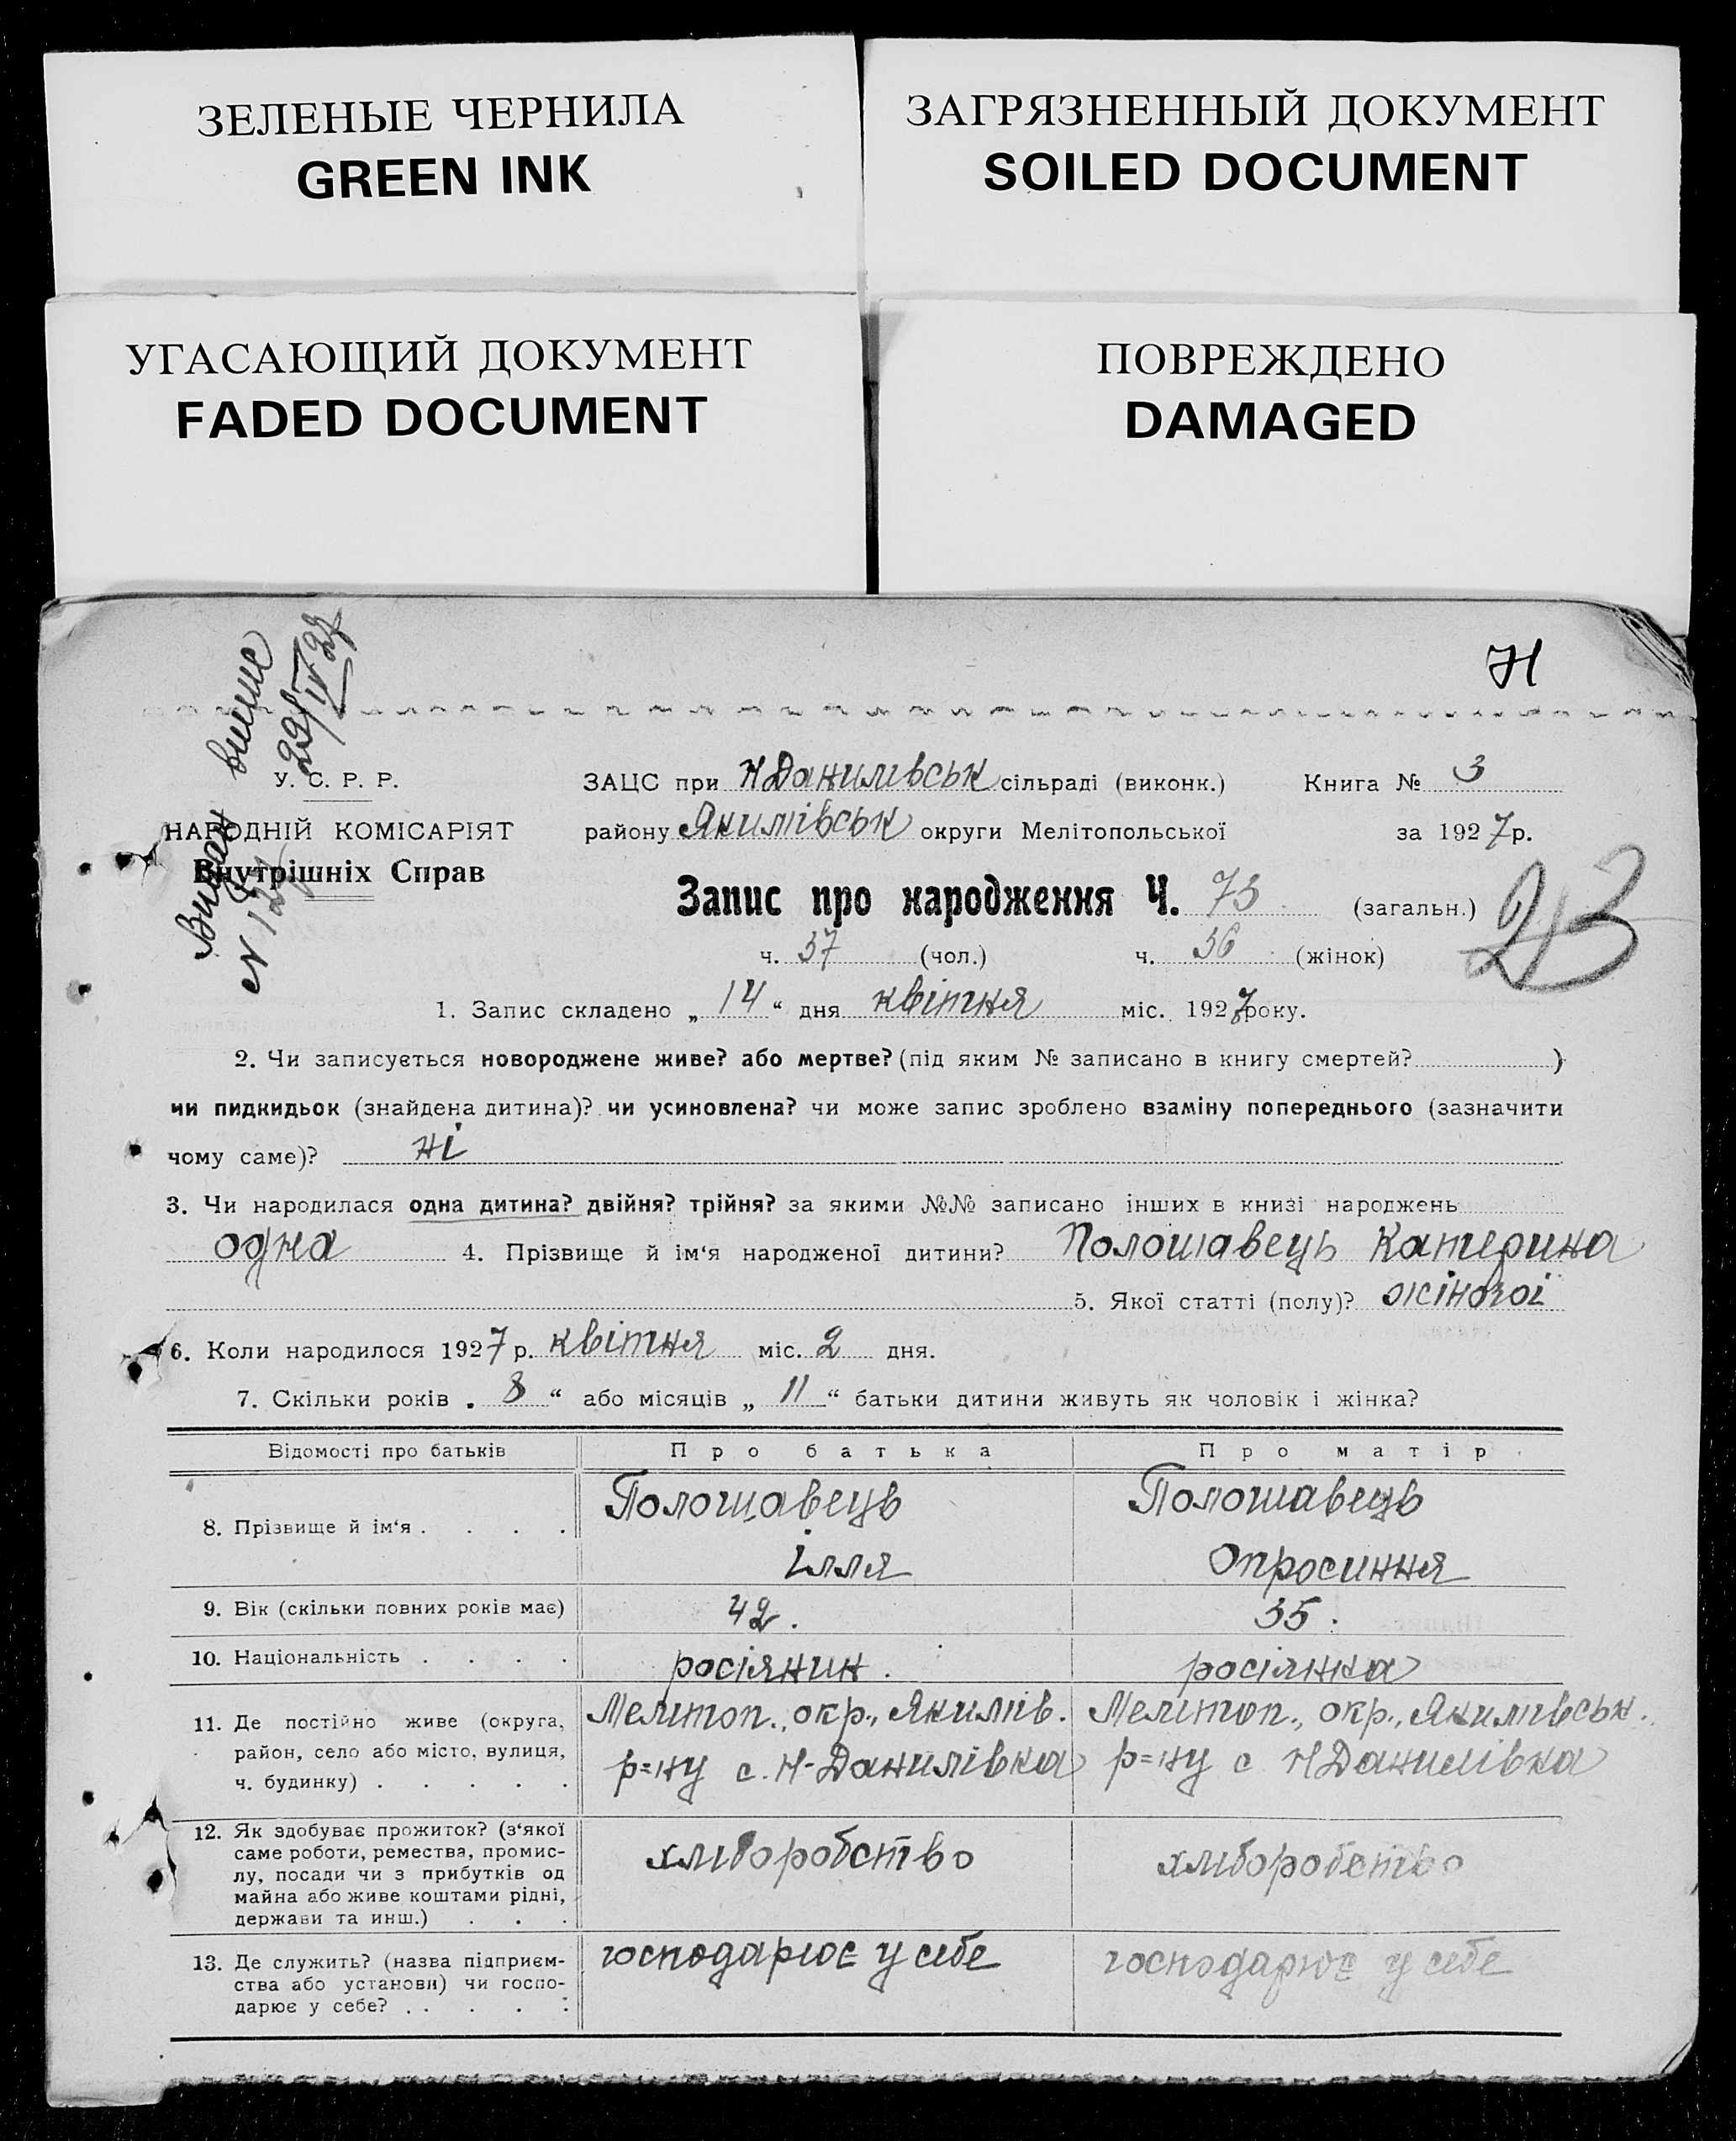 ЗЕЛЕНЫЕ ЧЕРНИЛА
GREEN INK
ЗАГРЯЗНЕННЫЙ ДОКУМЕНТ
SOILED DOCUMENT
УГАСАЮЩИЙ ДОКУМЕНТ
FADED DOCUMENT
ПОВРЕЖДЕНО
DAMAGED
Н
Видан випис
22/IV 27
У. С. Р. Р.
НАРОДНІЙ КОМІСАРІЯТ
Внутрішніх Справ
ЗАЦС при Н Данилівськ сільраді (виконк.) Книга № 3
району Якимівськ округи Мелітопольської за 1927 р.
Запис про народження Ч. 73 (загальн.)
213
ч. 37 (чол.) ч. 36 (жінок)
1. Запис складено „ 14 “ дня квітня міс. 1927 року.
2. Чи записується новороджене живе? або мертве? (під яким № записано в книгу смертей? )
чи пидкидьок (знайдена дитина)? чи усиновлена? чи може запис зроблено взаміну попереднього (зазначити
чому саме)? ні
3. Чи народилася одна дитина? двійня? трійня? за якими №№ записано інших в книзі народжень
одна 4. Прізвище й ім‘я народженої дитини? Полошавець Катерина
5. Якої статті (полу)? жіночої
6. Коли народилося 1927 р. квітня міс. 2 дня.
7. Скільки років „ 8 “ або місяців „ 11 “ батьки дитини живуть як чоловік і жінка?
Відомості про батьків Про батька Про матір
8. Прізвище й ім‘я . . . . Полошавець Полошавець
Ілля Опросиння
9. Вік (скільки повних років має) 42. 35.
10. Національність . . . . росіянин. росіянка
11. Де постійно живе (округа, Мелітоп., окр., Якимів. Мелітоп., окр., Якимівськ.
район, село або місто, вулиця, р=ну с. Н-Данилівка р=ну с Н Данилівка
ч. будинку) . . . . .
12. Як здобуває прожиток? (з‘якої
саме роботи, ремества, промис- хліборобство хліборобство
лу, посади чи з прибутків од
майна або живе коштами рідні,
держави та инш.) . . .
13. Де служить? (назва підприєм- господарює у себе господарює у себе
ства або установи) чи госпо-
дарює у себе? . . . . .